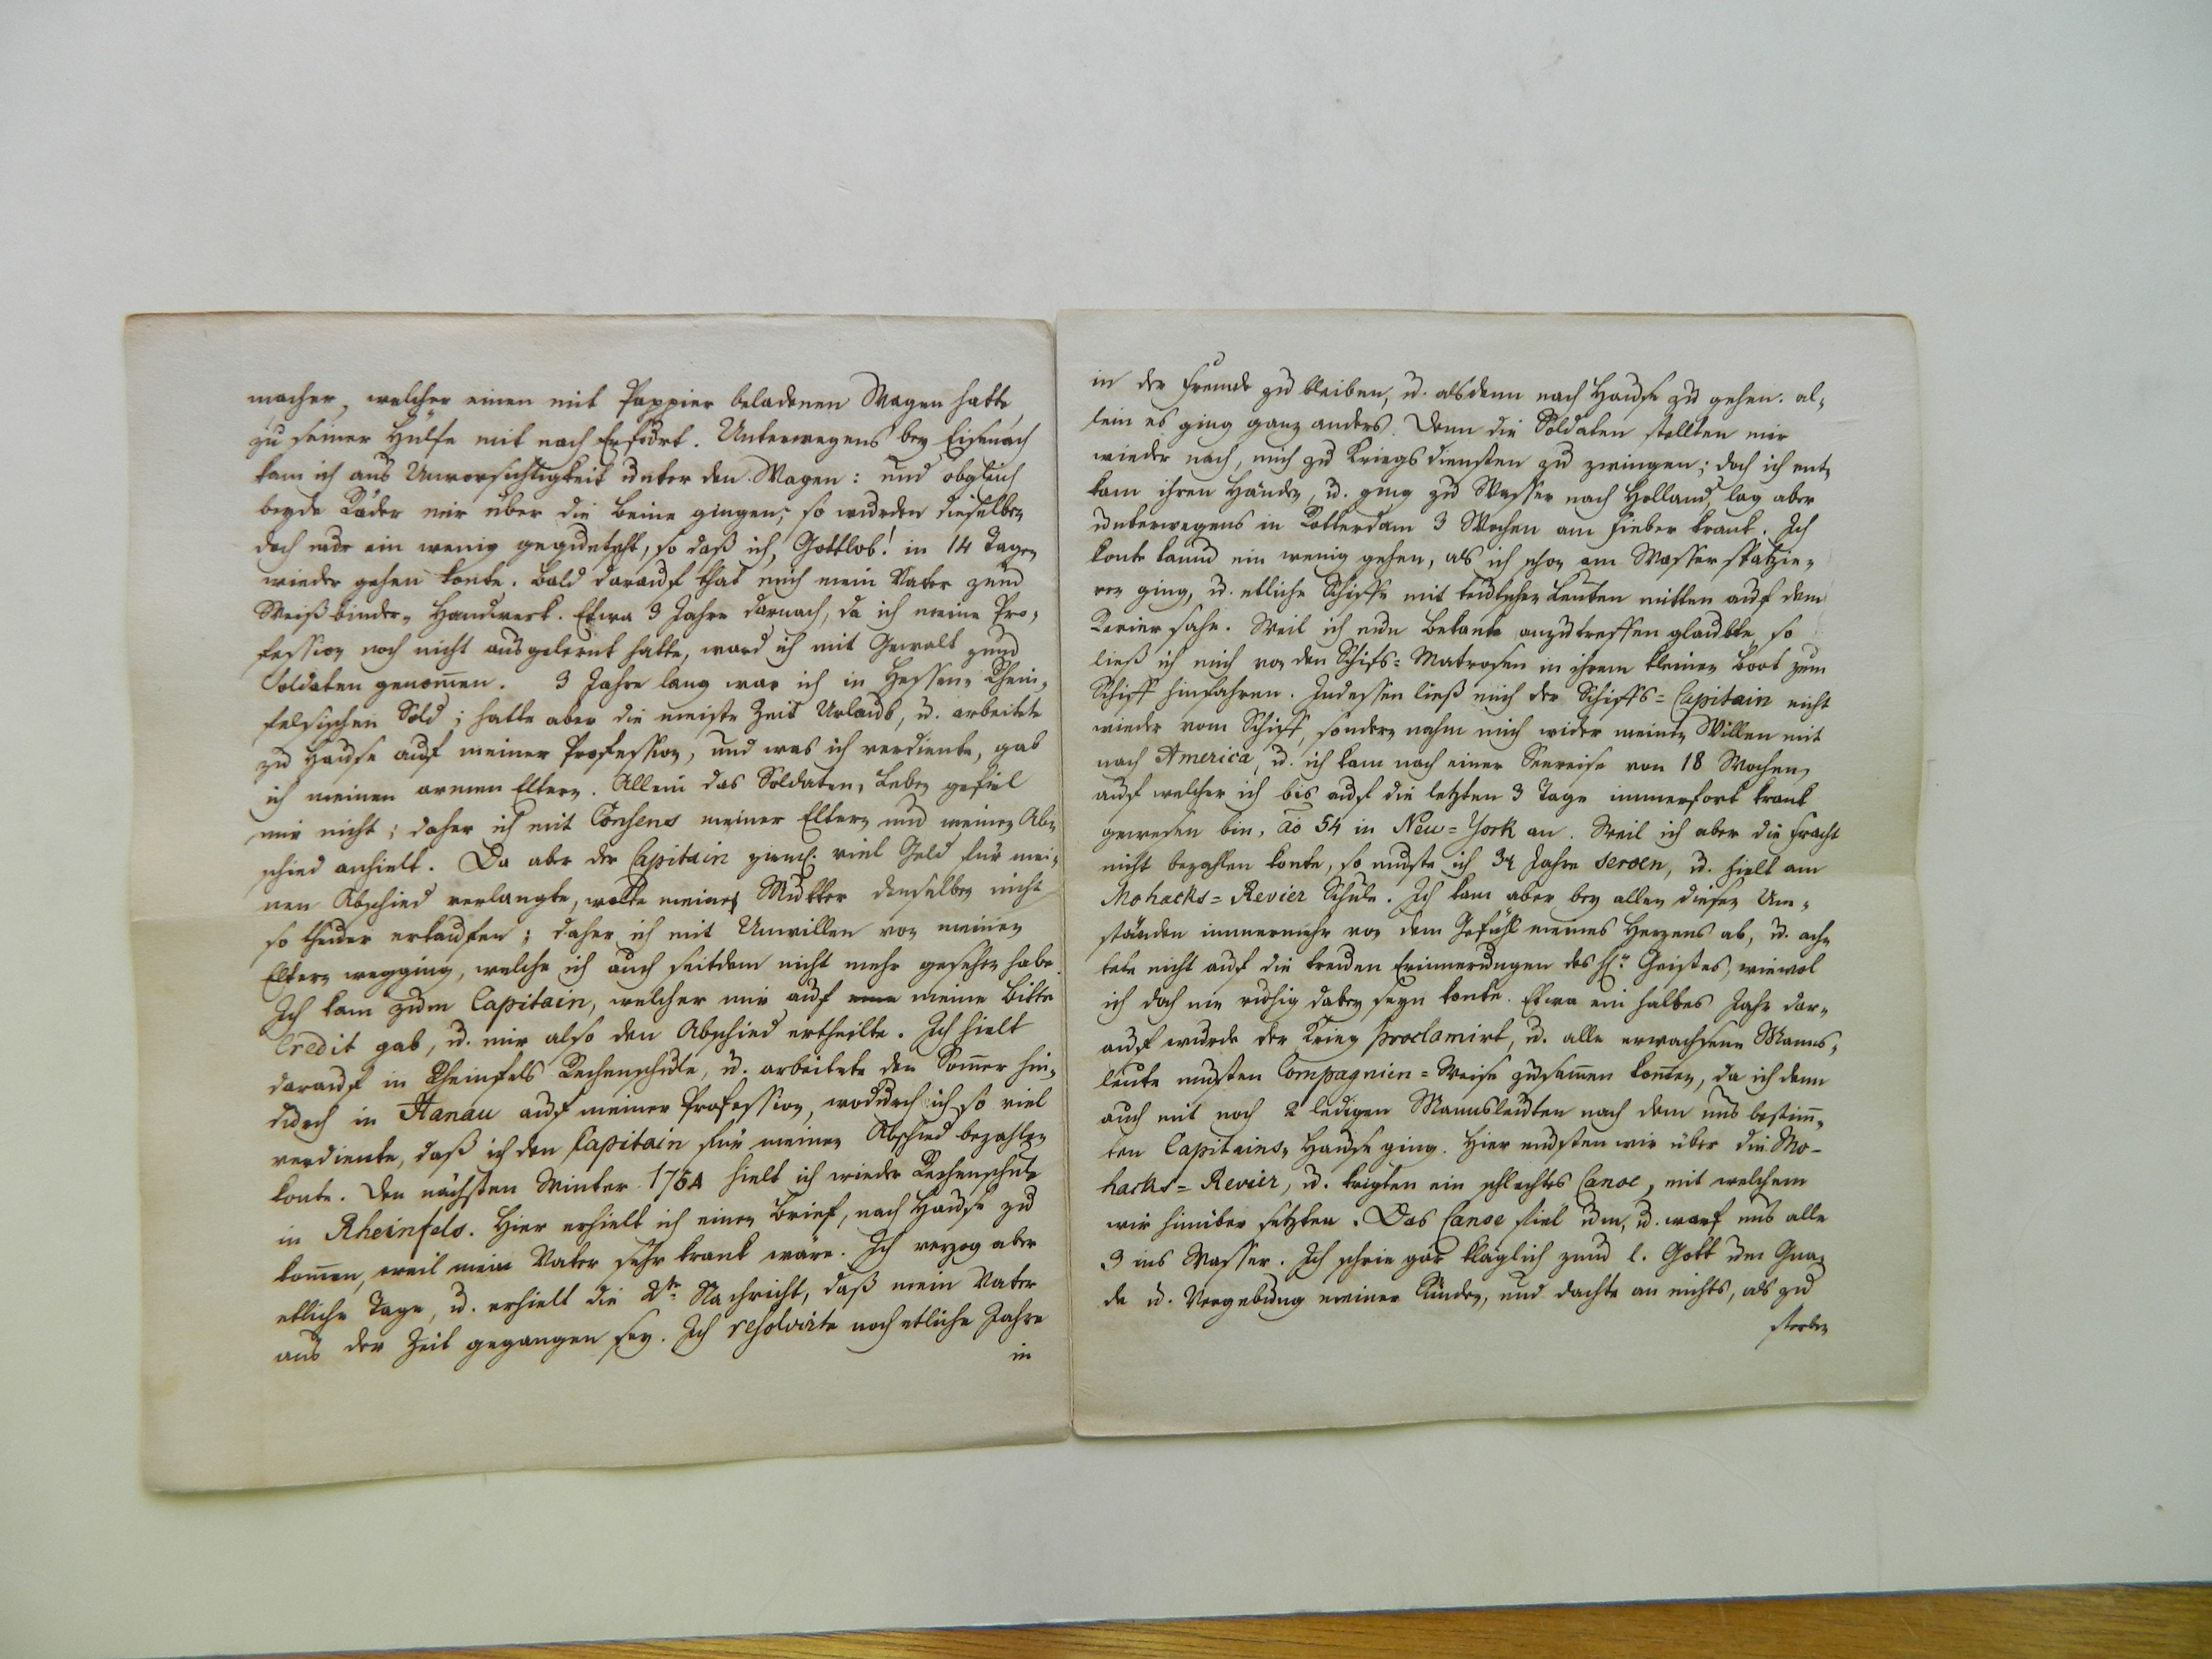 macher, welcher einen mit Pappier beladenen Wagen hatte,
zu seiner Hülfe mit nach Erfurt. Unterwegens bey Eisenach
kam ich aus Unvorsichtigkeit unter den Wagen: und obgleich
beyde Räder mir über die Beine gingen, so wurden dieselben
doch nur ein wenig gequetscht, so daß ich, Gottlob! in 14 Tagen
wieder gehen konte. Bald darauf that mich mein Vater zum
Weißbinder-Handwerk. Etwa 3 Jahre darnach, da ich meine Pro-
fession noch nicht ausgelernt hatte, ward ich mit Gewalt zum
Soldaten genom̄en. 3 Jahre lang war ich in Hessen-Rhein-
felsischen Sold; hatte aber die meiste Zeit Urlaub, u. arbeitete
zu Hause auf meiner Profession, und was ich verdiente, gab
ich meinen armen Eltern. Allein das Soldaten-Leben gefiel
mir nicht; daher ich mit Consens meiner Eltern um meinen Ab-
schied anhielt. Da aber der Capitain ziemł. viel Geld für mei-
nen Abschied verlangte, wolte meine Mutter denselben nicht
so theuer erkaufen; daher ich mit Unwillen von meinen
Eltern wegging, welche ich auch seitdem nicht mehr gesehen habe.
Ich kam zum Capitain, welcher mir auf meine Bitte
Credit gab, u. mir also den Abschied ertheilte. Ich hielt
darauf in Rheinfels Rechenschule, u. arbeitete den Som̄er hin-
durch in Hanau auf meiner Profession, wodurch ich so viel
verdiente, daß ich den Capitain für meinen Abschied bezahlen
konte. Den nächsten Winter 1754 hielt ich wieder Rechenschule
in Rheinfels. Hier erhielt ich einen Brief, nach Hause zu
kom̄en, weil mein Vater sehr krank wäre. Ich verzog aber
etliche Tage, u. erhielt die 2te Nachricht, daß mein Vater
aus der Zeit gegangen sey. Ich resolvirte noch etliche Jahre
in
in der Fremde zu bleiben, u. alsdenn nach Hause zu gehen. al-
lein es ging ganz anders. Denn die Soldaten stellten mir
wieder nach, mich zu Kriegsdiensten zu zwingen; doch ich ent-
kam ihren Händen, u. ging zu Wasser nach Holland, lag aber
unterwegens in Rotterdam 3 Wochen am Fieber krank. Ich
konte kaum ein wenig gehen, als ich schon am Wasser spatzie-
ren ging, u. etliche Schiffe mit teutschen Leuten mitten auf dem
Revier sahe. Weil ich nun Bekante anzutreffen glaubte, so
ließ ich mich von den Schifs=Matrosen in ihrem kleinen Boot zum
Schiff hinfahren. Indessen ließ mich der Schiffs=Capitain nicht
wieder vom Schiff, sondern nahm mich wider meinen Willen mit
nach America, u. ich kam nach einer Seereise von 18 Wochen,
auf welcher ich bis auf die letzten 3 Tage immerfort krank
gewesen bin, ao 54 in New=York an. Weil ich aber die Fracht
nicht bezahlen konte, so muste ich Jahre serven, u. hielt am
Mohacks=Revier Schule. Ich kam aber bey allen diesen Um-
ständen immermehr von dem Gefühl meines Herzens ab, u. ach-
tete nicht auf die treuen Erinnerungen des hł. Geistes, wiewol
ich doch nie ruhig dabey seyn konte. Etwa ein halbes Jahr dar-
auf wurde der Krieg proclamirt, u. alle erwachsene Manns-
leute musten Compagnien=Weise zusam̄en kom̄en, da ich denn
auch mit noch 2 ledigen Mannsleuten nach dem uns bestim̄-
ten Capitains-Hause ging. Hier musten wir über die Mo-
hacks=Revier, u. krigten ein schlechtes Canoe, mit welchem
wir hinüber setzten. Das Canoe fiel um, u. warf uns alle
3 ins Wasser. Ich schrie gar kläglich zum l. Gott um Gna-
de u. Vergebung meiner Sünden, und dachte an nichts, als zu
sterben